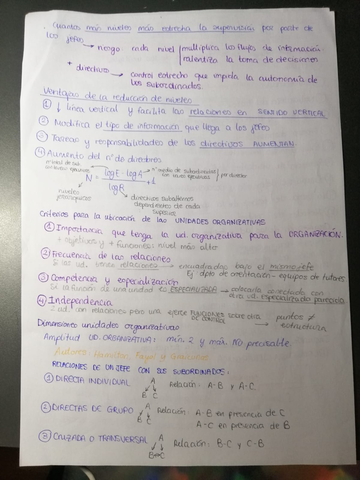 Cuántos más niveles más estrecha la supervisión por parte de
los jefes
→ riesgo cada nivel multiplica los flujos de información
ralentiza la toma de decisiones
+ directivos → control estrecho que impida la autonomía de
los subordinados.
Ventajas de la reducción de niveles
① ↓ línea vertical y facilita las relaciones en SENTIDO VERTICAL
② Modifica el tipo de información que llega a los jefes
③ Tareas y responsabilidades de los directivos AUMENTAN
④ Aumento del nº de directores
N = logE - logA / logB + 1
niveles
jerárquicos
directivos subalternos
dependientes de cada
superior
Criterios para la ubicación de las UNIDADES ORGANIZATIVAS
① Importancia que tenga la ud organizativa para la ORGANIZACIÓN.
+ objetivos y + funciones: nivel más alto
② Frecuencia de las relaciones
Si las ud. tienen relaciones → encuadradas bajo el mismo jefe
Ej. dpto de orientación - equipos de tutores
③ Competencia y especialización
Si la función de una unidad es ESPECIALIZADA → colocarla
otra ud. especializada parecida
④ Independencia
1 ud. con relaciones pero una ejerce FUNCIONES DE CONTROL sobre otra puntos ≠
estructura
Dimensiones unidades organizativas
Amplitud UD. ORGANIZATIVA: mín 2 y máx NO precisable
Autores:
RELACIONES DE UN JEFE CON SUS SUBORDINADOS:
① DIRECTA INDIVIDUAL A B C Relación: A-B y A-C
② DIRECTAS DE GRUPO A B C Relación: A-B en presencia de C
A-C en presencia de B
③ CRUZADA O TRANSVERSAL A B↔C Relación: B-C y C-B